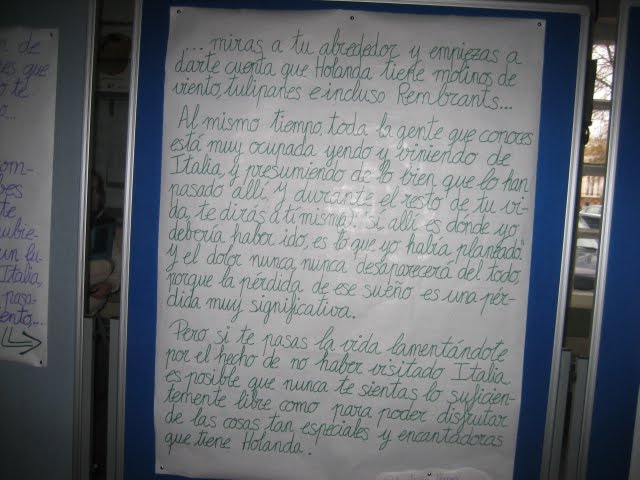 ...miras a tu alrededor y empiezas a
darte cuenta que Holanda tiene molinos de
viento, tulipanes e incluso Rembrants...
Al mismo tiempo, toda la gente que conoces
está muy ocupada yendo y viniendo de
Italia, y presumiendo de lo bien que lo han
pasado allí. Y durante el resto de tu vi-
da, te dirás a ti misma: "Sí, allí es dónde yo
debería haber ido, es lo que yo había planeado."
Y el dolor nunca, nunca desaparecerá del todo,
porque la pérdida de ese sueño es una pér-
dida muy significativa.
Pero si te pasas la vida lamentándote
por el hecho de no haber visitado Italia
es posible que nunca te sientas lo suficien-
temente libre como para poder disfrutar
de las cosas tan especiales y encantadoras
que tiene Holanda.